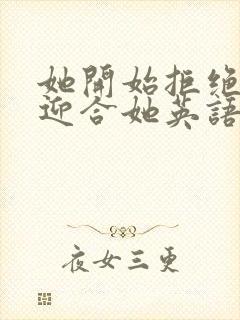 她開始拒絕
迎合她英語
夜女三更